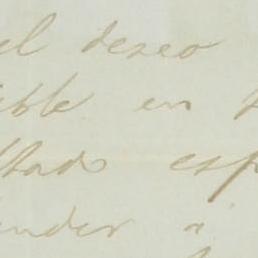 el deseo
ible en
ltado esp
ender a